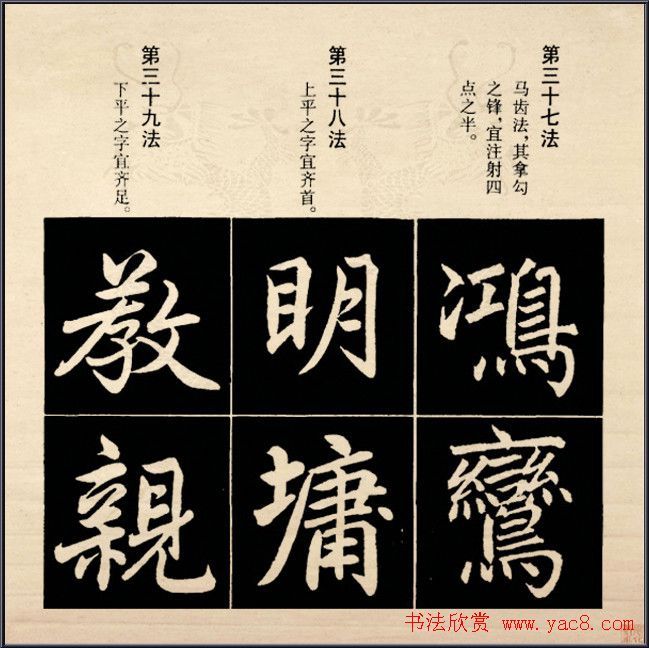 第三十七法
马齿法，其拿勾
之锋，宜注射四
点之半。
鴻
鸞
第三十八法
上平之字宜齐首。
明
墉
第三十九法
下平之字宜齐足。
教
親
书法欣赏 www.yac8.com